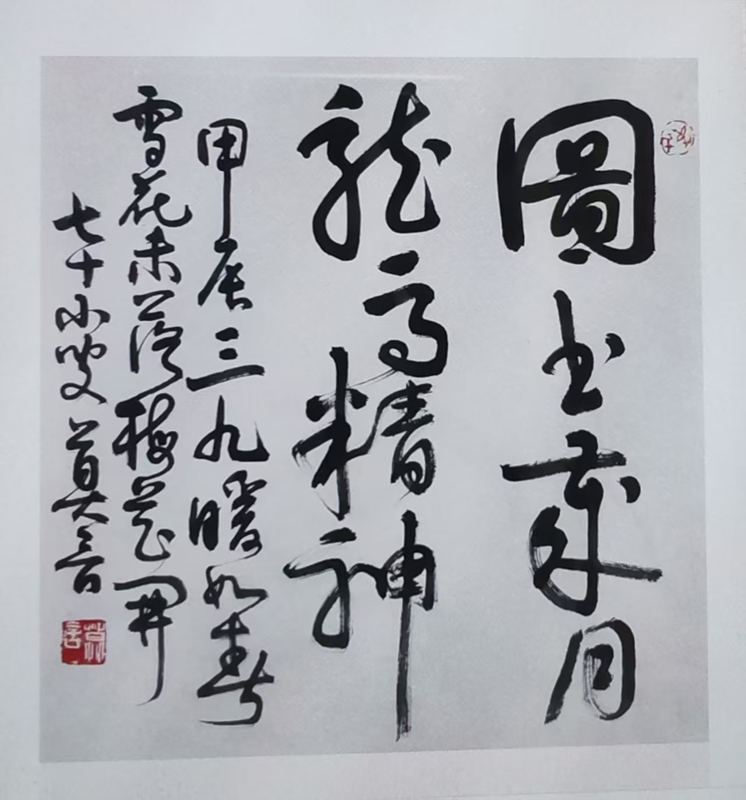 圖书歲月
龍马精神
甲辰三九暖如春
雪花未落梅花開
七十小叟莫言
莫言